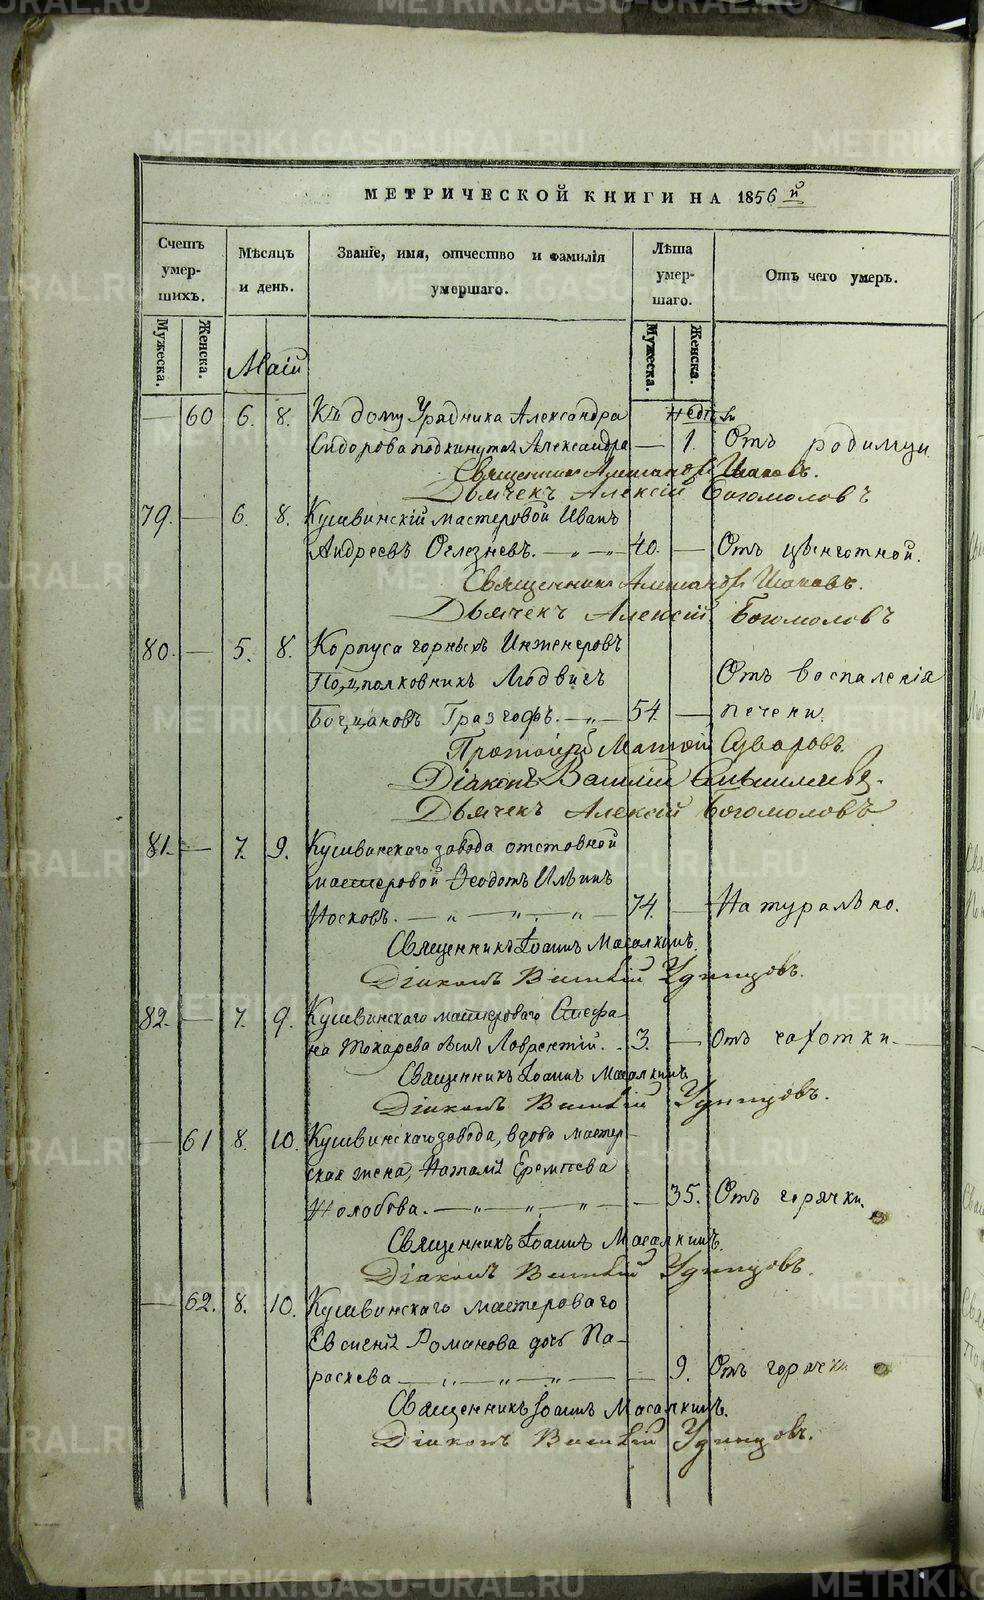 METRIKI.GASO-URAL.RU
МЕТРИЧЕСКОЙ КНИГИ НА 1856 й
Счетъ умер-шихъ.
Мѣсяцъ и день.
Званіе, имя, отчество и фамилія умершаго.
Лѣта умер-шаго.
Отъ чего умеръ.
Мужеска.
Женска.
Мужеска.
Женска.
Маій
— 60 6. 8. Къ дому Урядника Александра недѣли
Сидорова подкинутая Александра — 1. Отъ родимца
Священникъ
Дьячекъ Алексій Богомоловъ
79. — 6. 8. Кушвинскій мастеровой Иванъ
Андреевъ Оглезневъ. — „ — 40. — Отъ цынготной.
Священникъ
Дьячекъ Алексій Богомоловъ
80. — 5. 8. Корпуса горныхъ Инженеровъ
Подполковникъ Людвигъ Отъ воспаленія
Богдановъ Гразгофъ. — „ — 54. — печени.
Протоіерей Суворовъ.
Діаконъ Василій
Дьячекъ Алексій Богомоловъ
81. — 7. 9. Кушвинскаго завода отставной
мастеровой Ѳеодотъ Ильинъ
Носковъ. — „ — „ — „ — 74. — Натурально.
Священникъ Іоаннъ Масалкинъ.
Діаконъ Удинцовъ.
82. — 7. 9. Кушвинскаго мастероваго Стефа-
на Токарева сынъ Лаврентій. . 3. — Отъ чахотки. —
Священникъ Іоаннъ Масалкинъ
Діаконъ Удинцовъ.
— 61 8. 10. Кушвинскаго завода, вдова мастер-
ская жена, Наталія Еремѣева
Жолобова. — „ — „ — „ — — 35. Отъ горячки.
Священникъ Іоаннъ Масалкинъ.
Діаконъ Удинцовъ.
— 62. 8. 10. Кушвинскаго мастероваго
Евсигнія Романова дочь Па-
раскева — „ — „ — „ — — 9. Отъ горячки
Священникъ Іоаннъ Масалкинъ.
Діаконъ Удинцовъ.